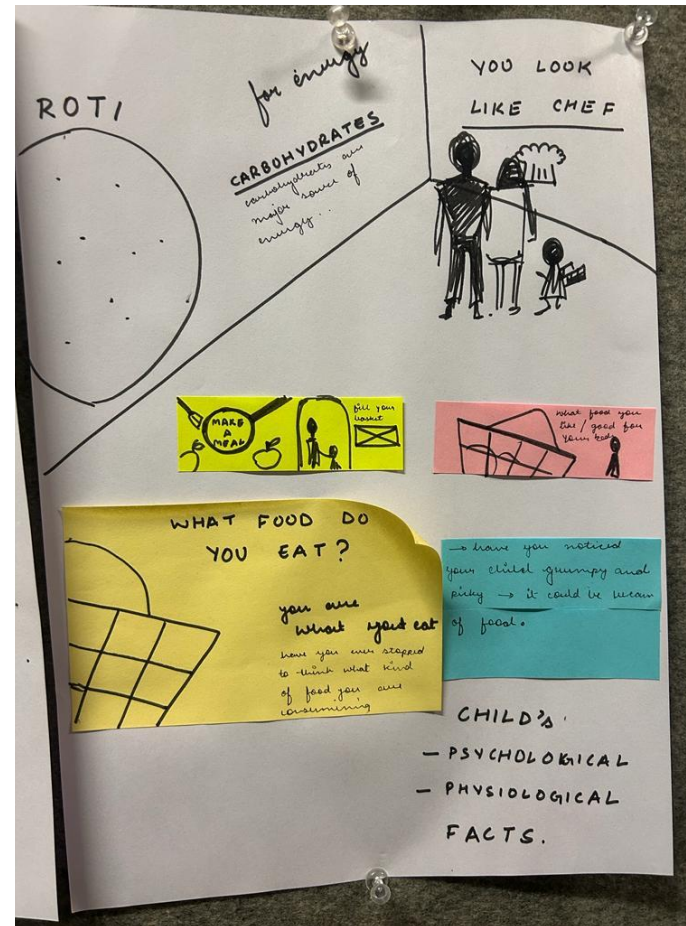 ROTI
for energy
CARBOHYDRATES
carbohydrates are
major source of
energy..
YOU LOOK
LIKE CHEF
MAKE
A
MEAL
fill your
basket
what food you
like / good for
your
WHAT FOOD DO
YOU EAT?
you are
what you eat
have you ever stopped
to think what kind
of food you are
consumining
→ have you noticed
your child grumpy and
picky → it could be because
of food.
CHILD's
- PSYCHOLOGICAL
- PHYSIOLOGICAL
FACTS.